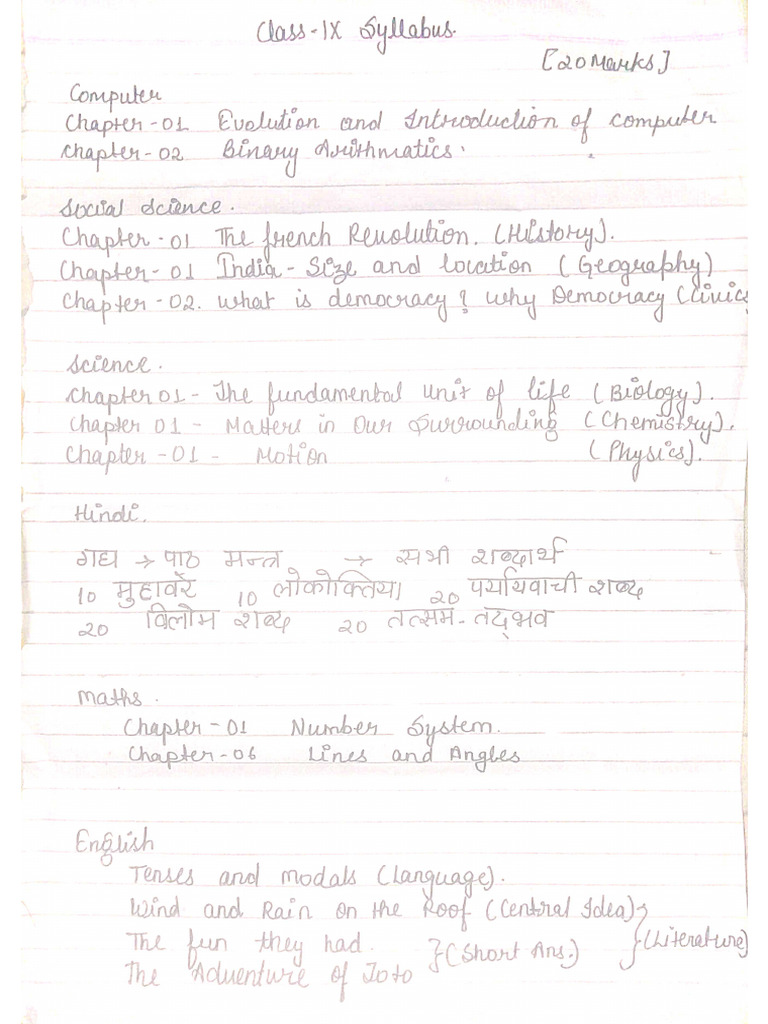 Class-IX Syllabus.
[20 Marks]
Computer
Chapter-01 Evolution and Introduction of computer
Chapter-02 Binary Arithmatics.
Social Science.
Chapter-01 The french Revolution. (History).
Chapter-01 India-Size and location (Geography)
Chapter-02. What is democracy? Why Democracy (Civics
Science.
Chapter 01- The fundamental unit of life (Biology).
Chapter 01 - Matters in Our Surrounding (Chemistry).
Chapter-01- Motion (Physics).
Hindi.
गद्य → पाठ मन्त्र → सभी शब्दार्थ
10 मुहावरे 10 लोकोक्तिया 20 पर्यायवाची शब्द
20 विलोम शब्द 20 तत्सम-तद्भव
Maths.
Chapter-01 Number System.
Chapter-06 Lines and Angles
English
Tenses and modals (Language).
Wind and Rain on the Roof (Central Idea)
The fun they had. } (Short Ans.) } (Literature)
The Adventure of Toto